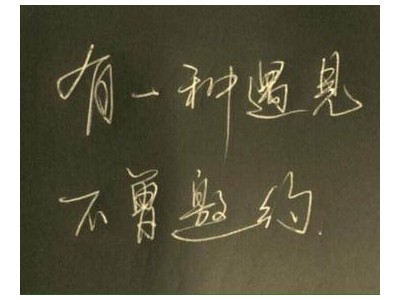 有一种遇見
不曾邀约.